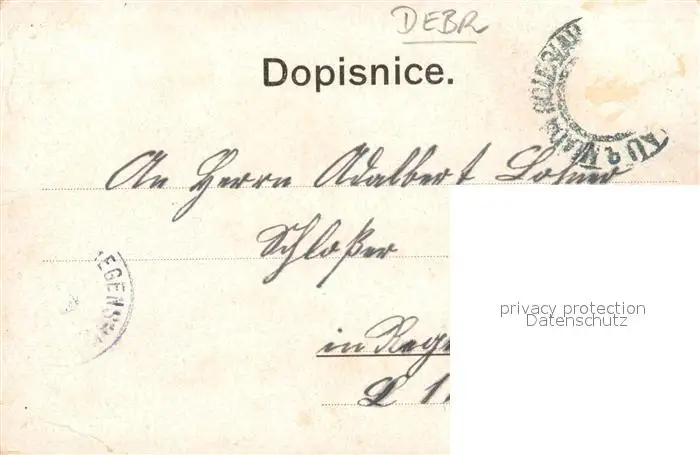 DEBR
Dopisnice.
An Herrn Adalbert Lohner
Schloßer
in Rege
L 1
privacy protection
Datenschutz